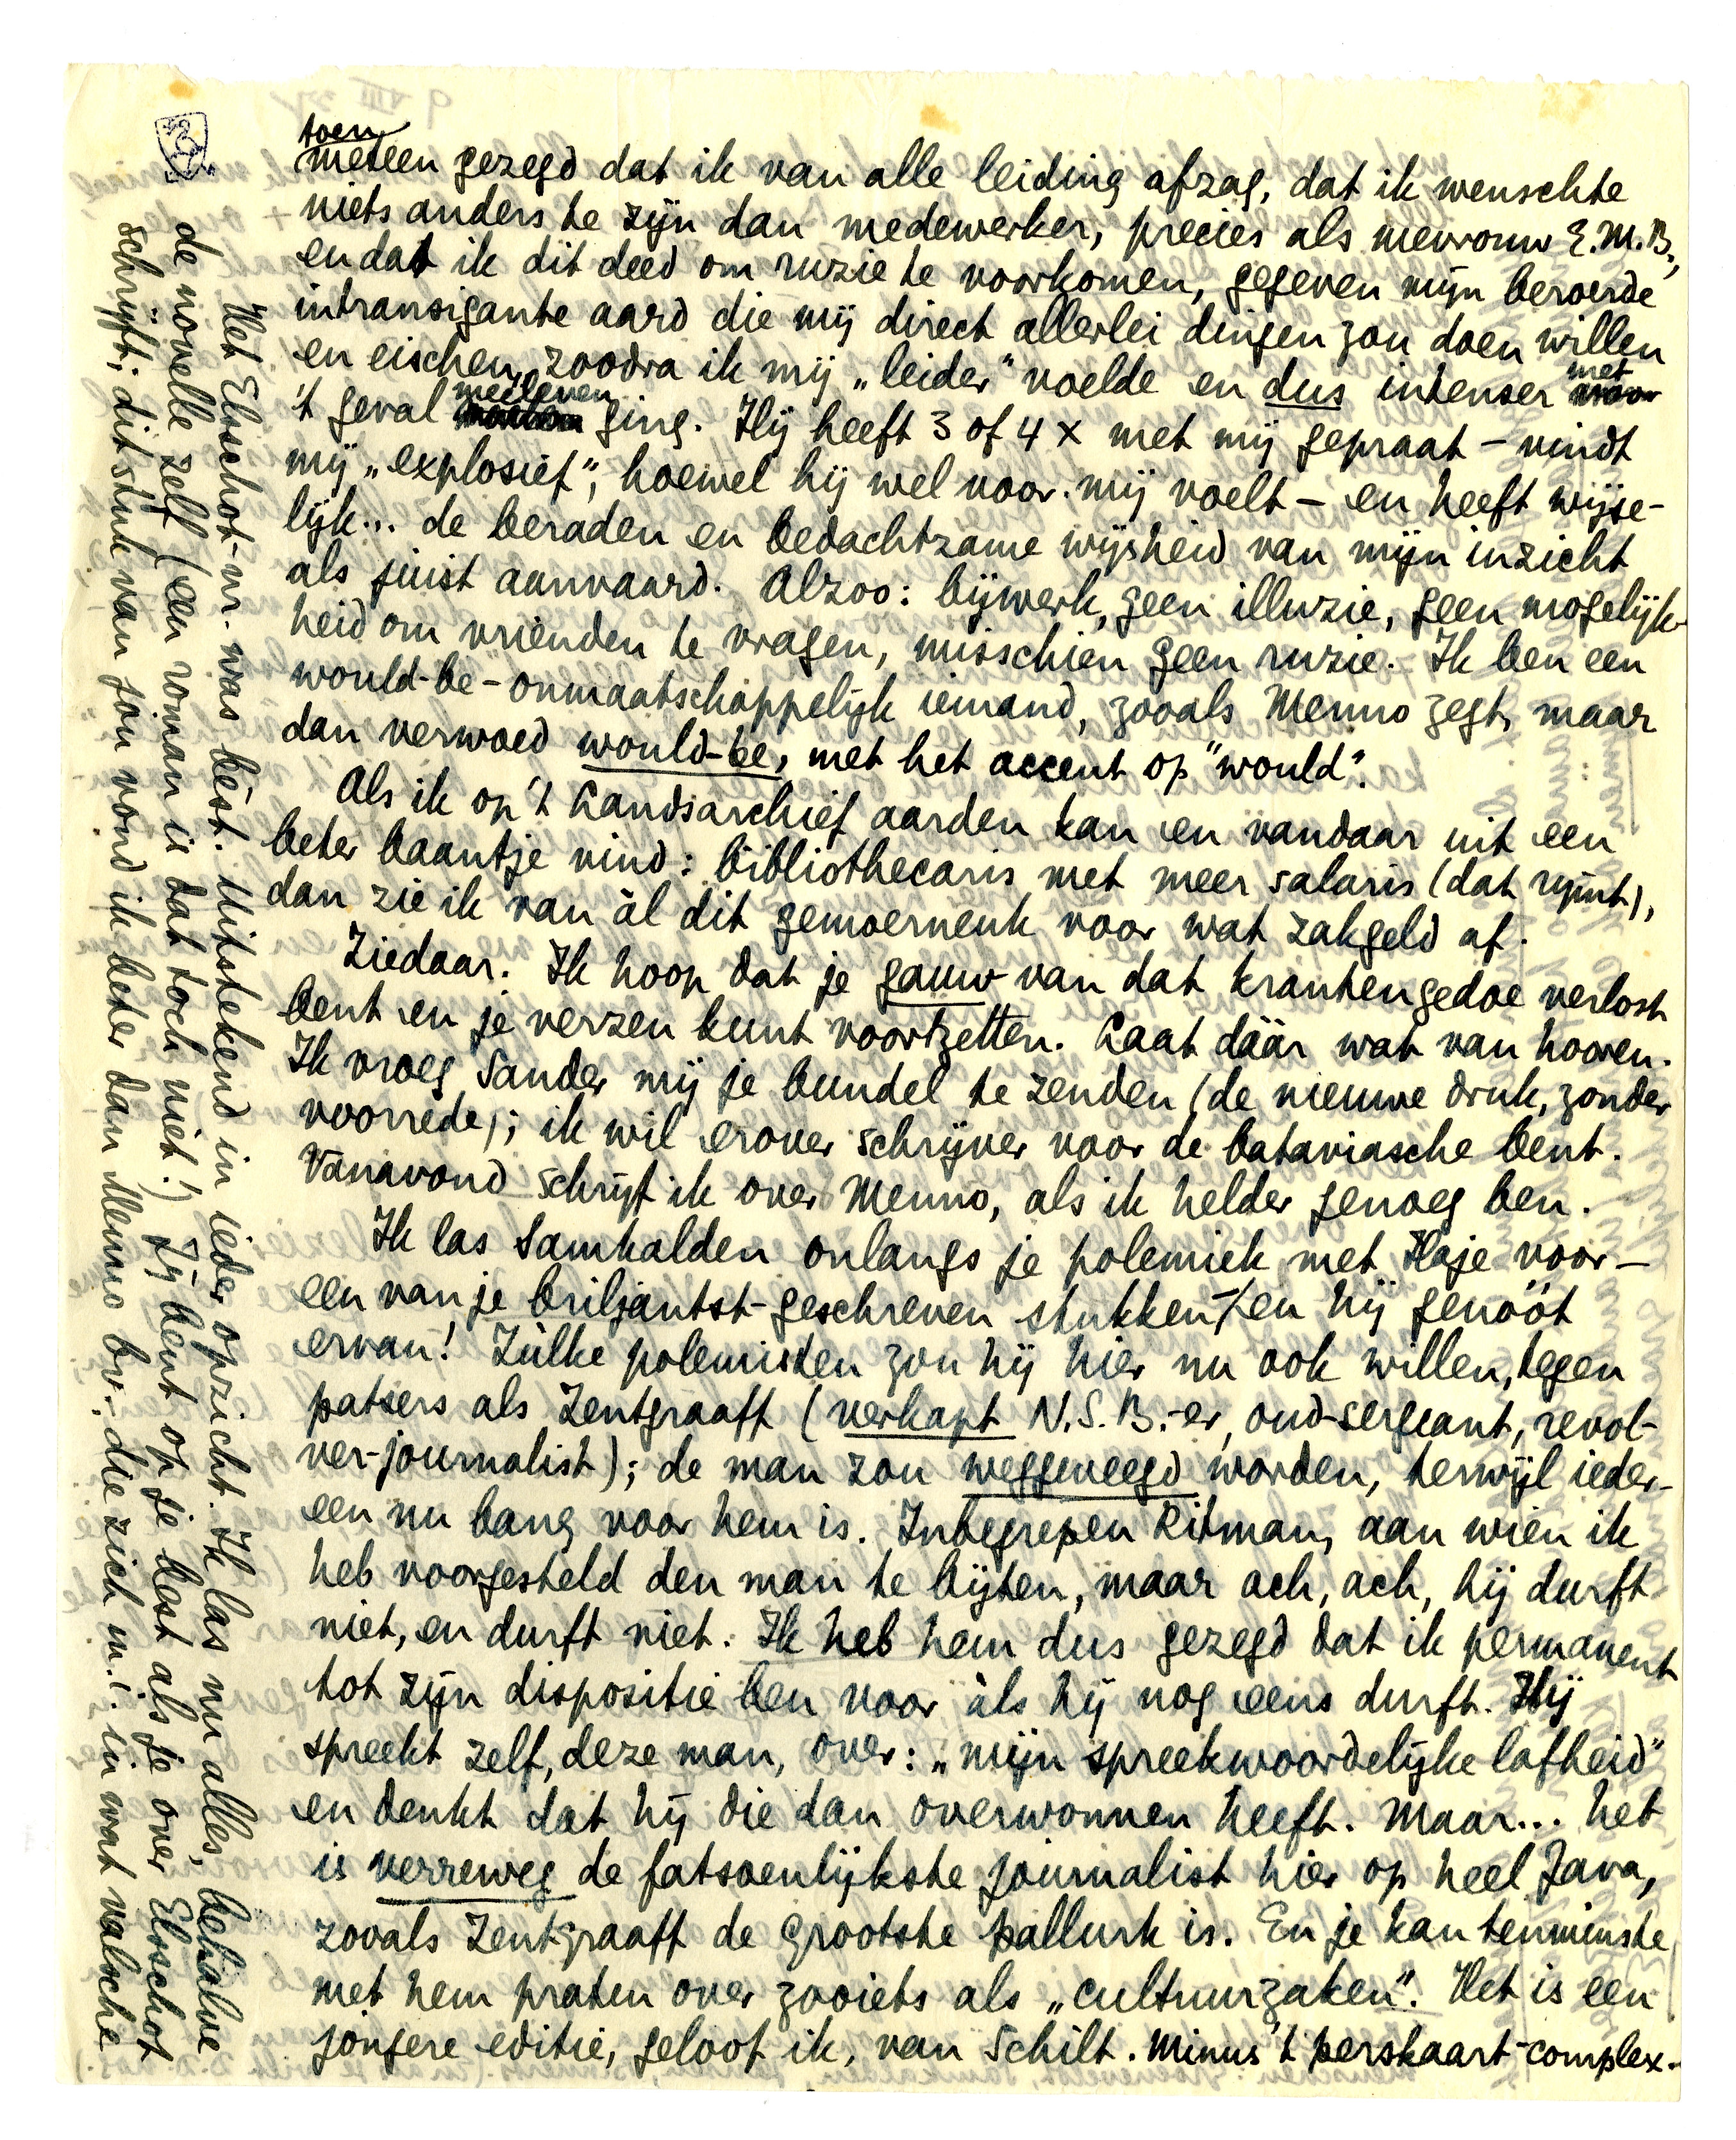 toen
meteen gezegd dat ik van alle leiding afzag, dat ik wenschte
niets anders te zijn dan medewerker, precies als mevrouw E.M.B.,
en dat ik dit deed om ruzie te voorkomen, gegeven mijn beroerde
intransigante aard die mij direct allerlei dingen zou doen willen
en eischen, zoodra ik mij „leider" voelde en dus intenser met
't geval meeleven ging. Hij heeft 3 of 4 x met mij gepraat – vindt
mij „explosief", hoewel hij wel voor mij voelt – en heeft wijse-
lijk... de beraden en bedachtzame wijsheid van mijn inzicht
als juist aanvaard. Alzoo: bijwerk, geen illuzie, geen mogelijk-
heid om vrienden te vragen, misschien geen ruzie. Ik ben een
would-be-onmaatschappelijk iemand, zooals Menno zegt, maar
dan verwoed would-be, met het accent op "would".
Als ik op 't Landsarchief aarden kan en vandaar uit een
beter baantje vind: bibliothecaris met meer salaris (dat rijmt),
dan zie ik van àl dit gemoerneuk voor wat zakgeld af.
Ziedaar. Ik hoop dat je gauw van dat krantengedoe verlost
bent en je verzen kunt voortzetten. Laat dáár wat van hooren.
Ik vroeg Sander mij je bundel te zenden (de nieuwe druk, zonder
voorrede); ik wil erover schrijven voor de bataviasche bent.
Vanavond schrijf ik over Menno, als ik helder genoeg ben.
Ik las Samkalden onlangs je polemiek met Haje voor –
een van je briljantst-geschreven stukken – en hij genóót
ervan! Zùlke polemisten zou hij hier nu ook willen, tegen
patsers als Zentgraaff (verkapt N.S.B.-er, oud-sergeant, revol-
ver-journalist); de man zou weggeveegd worden, terwijl ieder-
een nu bang voor hem is. Inbegrepen Ritman, aan wien ik
heb voorgesteld den man te bijten, maar ach, ach, hij durft
niet, en durft niet. Ik heb hem dus gezegd dat ik permanent
tot zijn dispositie ben voor àls hij nog eens durft. Hij
spreekt zelf, deze man, over: „mijn spreekwoordelijke lafheid"
en denkt dat hij die dan overwonnen heeft. Maar... het
is verreweg de fatsoenlijkste journalist hier op heel Java,
zooals Zentgraaff de grootste pallurk is. En je kan tenminste
met hem praten over zooiets als „cultuurzaken". Het is een
jongere editie, geloof ik, van Schilt. Minus 't perskaart-complex.
Het Elsschot-nr. was bèst. Uitstekend in ieder opzicht. Ik las nu alles, behalve
de novelle zelf (een roman is dat toch niet!) Jij bent op je best als je over Elsschot
schrijft; dit stuk van jou vond ik beter dan Menno bv. die zich m.i. in wat valsche